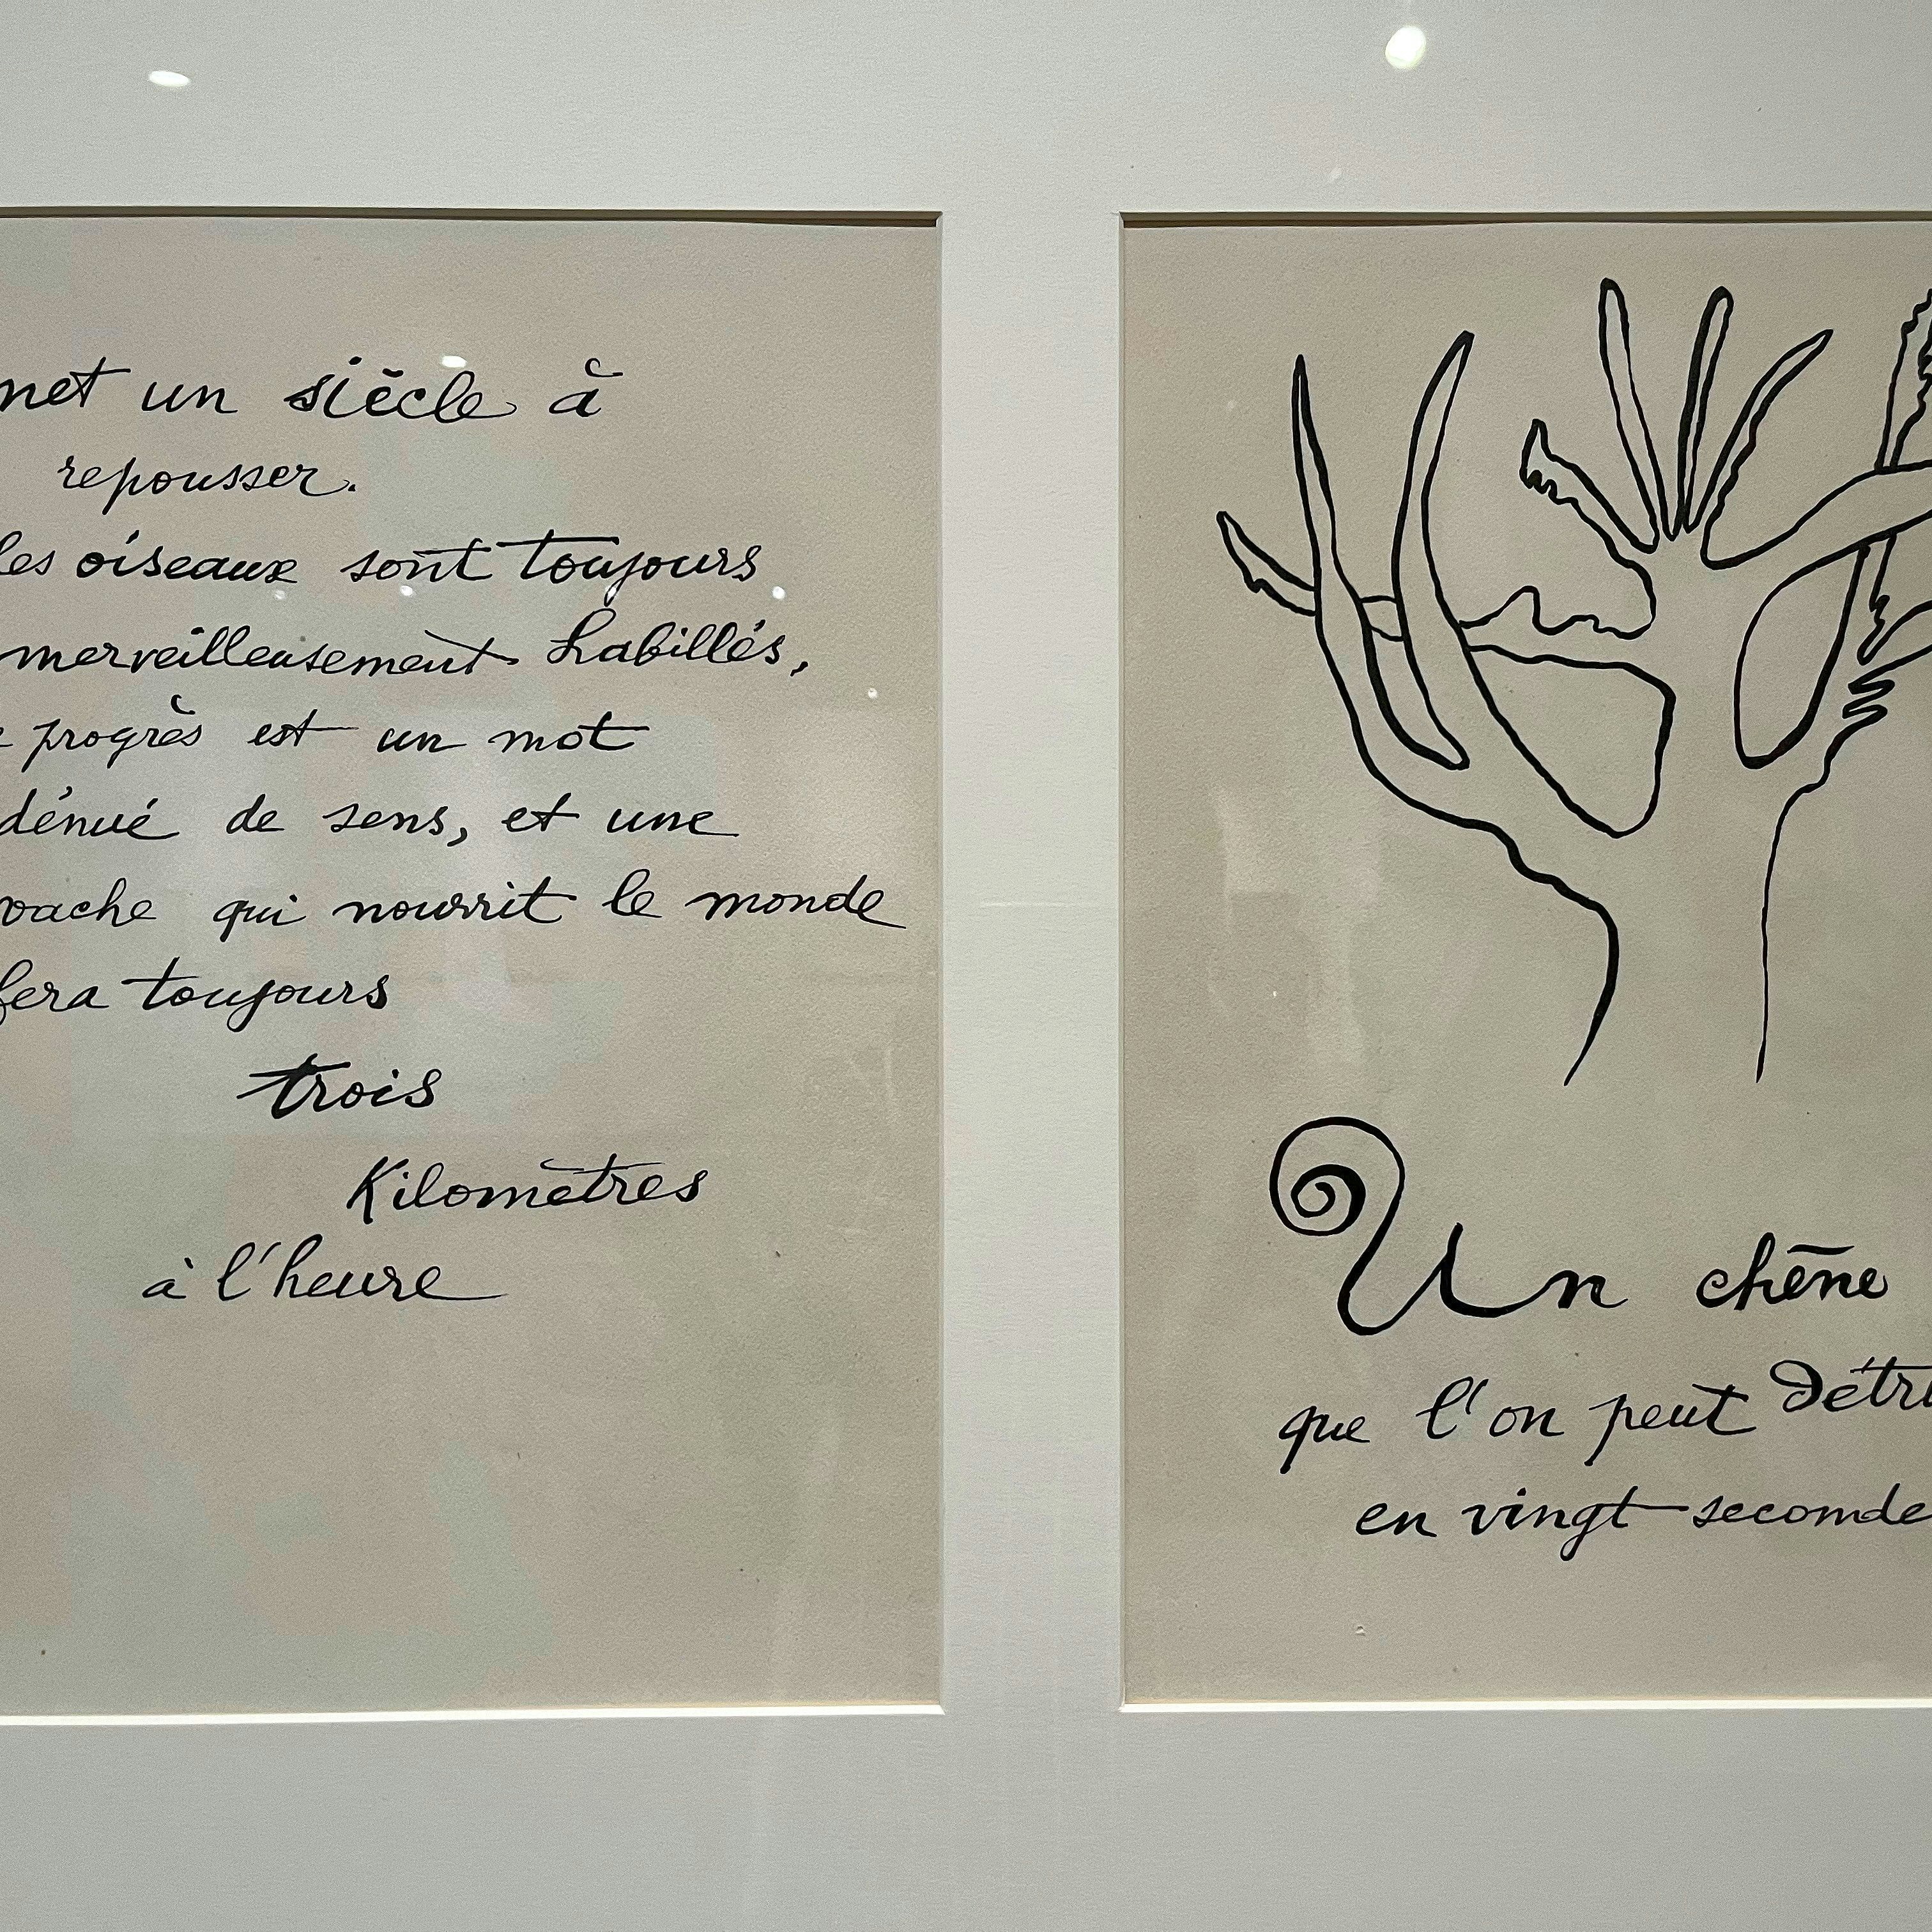 met un siècle à
repousser.
les oiseaux sont toujours
merveilleusement habillés,
progrès est un mot
dénué de sens, et une
vache qui nourrit le monde
fera toujours
trois
Kilomètres
à l'heure
Un chêne
que l'on peut détru
en vingt seconde